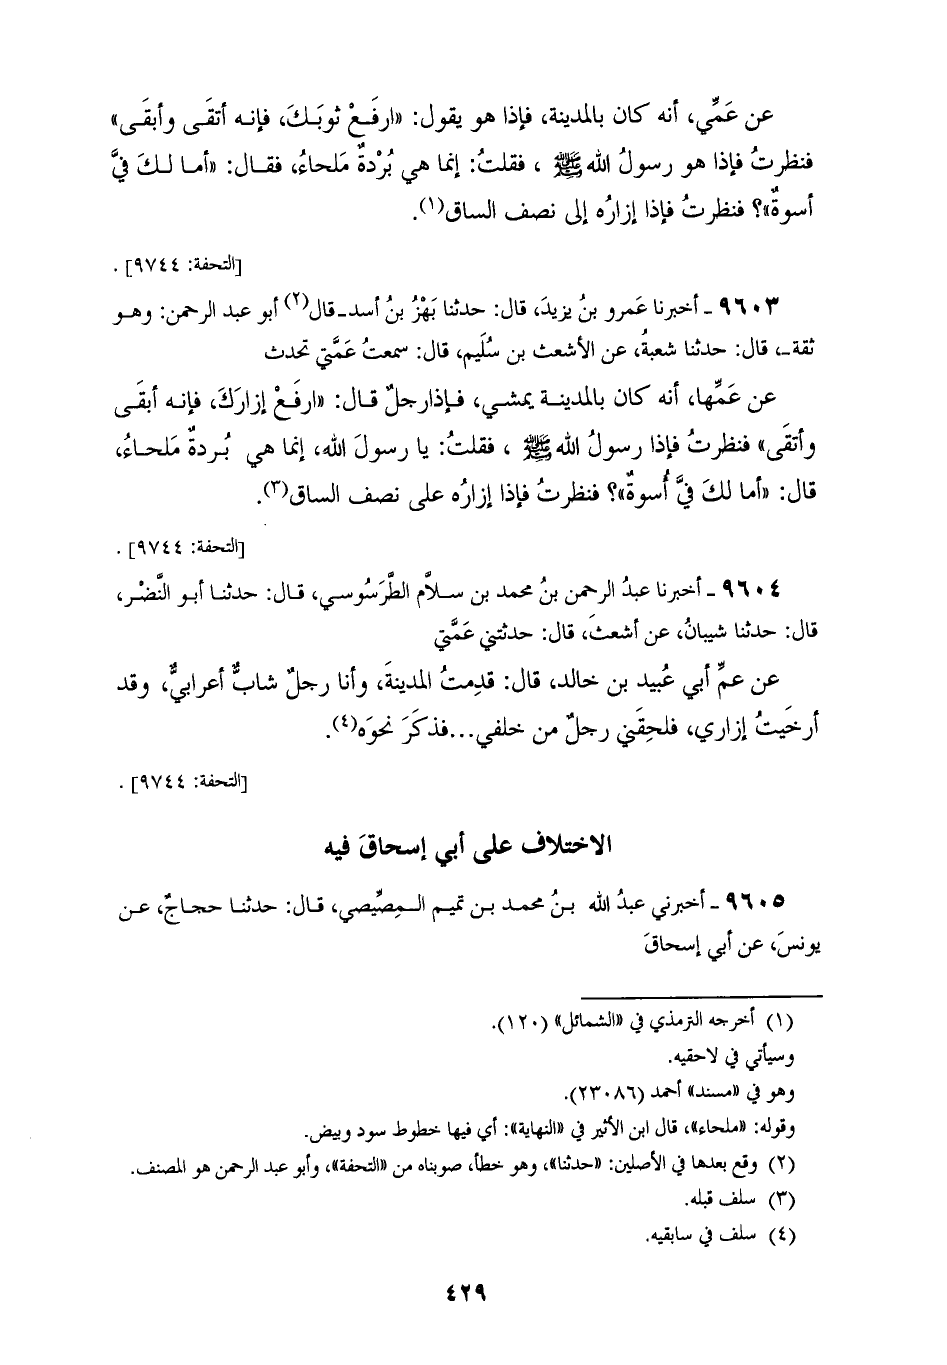 عن عَمِّي، أنه كان بالمدينة، فإذا هو يقول: «ارفَعْ ثوبَكَ، فإنه أتقَى وأبقَى»
فنظرتُ فإذا هو رسولُ الله ﷺ ، فقلتُ: إنما هي بُرْدةٌ مَلحاءُ، فقال: «أما لكَ فيَّ
أسوةٌ»؟ فنظرتُ فإذا إزارُه إلى نصف الساق(١).
[التحفة: ٩٧٤٤] .
٩٦٠٣ - أخبرنا عَمرو بنُ يزيدَ، قال: حدثنا بَهْزُ بنُ أسد-قال(٢) أبو عبد الرحمن: وهو
ثقة-، قال: حدثنا شعبةُ، عن الأشعث بن سُلَيم، قال: سمعتُ عَمَّتي تحدث
عن عَمِّها، أنه كان بالمدينة يمشي، فإذارجلٌ قال: «ارفَعْ إزارَكَ، فإنه أبقَى
وأتقَى» فنظرتُ فإذا رسولُ الله ﷺ ، فقلتُ: يا رسولَ الله، إنما هي بُردةٌ مَلحاءُ،
قال: «أما لكَ فيَّ أُسوةٌ»؟ فنظرتُ فإذا إزارُه على نصف الساق(٣).
[التحفة: ٩٧٤٤] .
٩٦٠٤ - أخبرنا عبدُ الرحمن بنُ محمد بن سلاَّم الطَّرَسُوسي، قال: حدثنا أبو النَّضْر،
قال: حدثنا شيبانُ، عن أشعثَ، قال: حدثتني عَمَّتي
عن عمِّ أبي عُبيد بن خالد، قال: قدِمتُ المدينةَ، وأنا رجلٌ شابٌّ أعرابيٌّ، وقد
أرخَيتُ إزاري، فلحِقَني رجلٌ من خلفي...فذكَرَ نحوَه(٤).
[التحفة: ٩٧٤٤] .
الاختلاف على أبي إسحاقَ فيه
٩٦٠٥ - أخبرني عبدُ الله بنُ محمد بن تميم المِصِّيصي، قال: حدثنا حجاجٌ، عن
يونسَ، عن أبي إسحاقَ
(١) أخرجه الترمذي في «الشمائل» (١٢٠).
وسيأتي في لاحقيه.
وهو في «مسند» أحمد (٢٣٠٨٦).
وقوله: «ملحاء»، قال ابن الأثير في «النهاية»: أي فيها خطوط سود وبيض.
(٢) وقع بعدها في الأصلين: «حدثنا»، وهو خطأ، صوبناه من «التحفة»، وأبو عبد الرحمن هو المصنف.
(٣) سلف قبله.
(٤) سلف في سابقيه.
٤٢٩